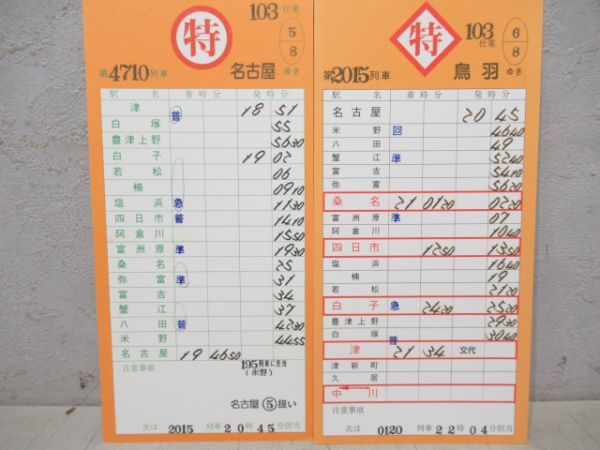 103仕業
特
5
8
第4710列車 名古屋 ゆき
駅名 着時分 発時分
津 普 18 51
白塚 55
豊津上野 5630
白子 19 02
若松 06
楠 0910
塩浜 急 1130
四日市 普 1410
阿倉川 1550
富洲原 準 1930
桑名 25
弥富 準 31
富吉 34
蟹江 37
八田 普 4230
米野 4455
名古屋 19 4650
注意事項
195列車に充当
(米野)
名古屋⑤扱い
次は 2015 列車 20時45分担当
103仕業
特
6
8
第2015列車 鳥羽 ゆき
駅名 着時分 発時分
名古屋 20 45
米野 回 4640
八田 49
蟹江 準 5240
富吉 5410
弥富 5620
桑名 21 0120 0220
富洲原 準 07
阿倉川 1040
四日市 1250 1350
塩浜 1640
楠 19
若松 2120
白子 急 2420 2520
豊津上野 2930
白塚 3040
普
津 21 34 交代
津新町
久居
中川
注意事項
次は 0120 列車 22時04分担当